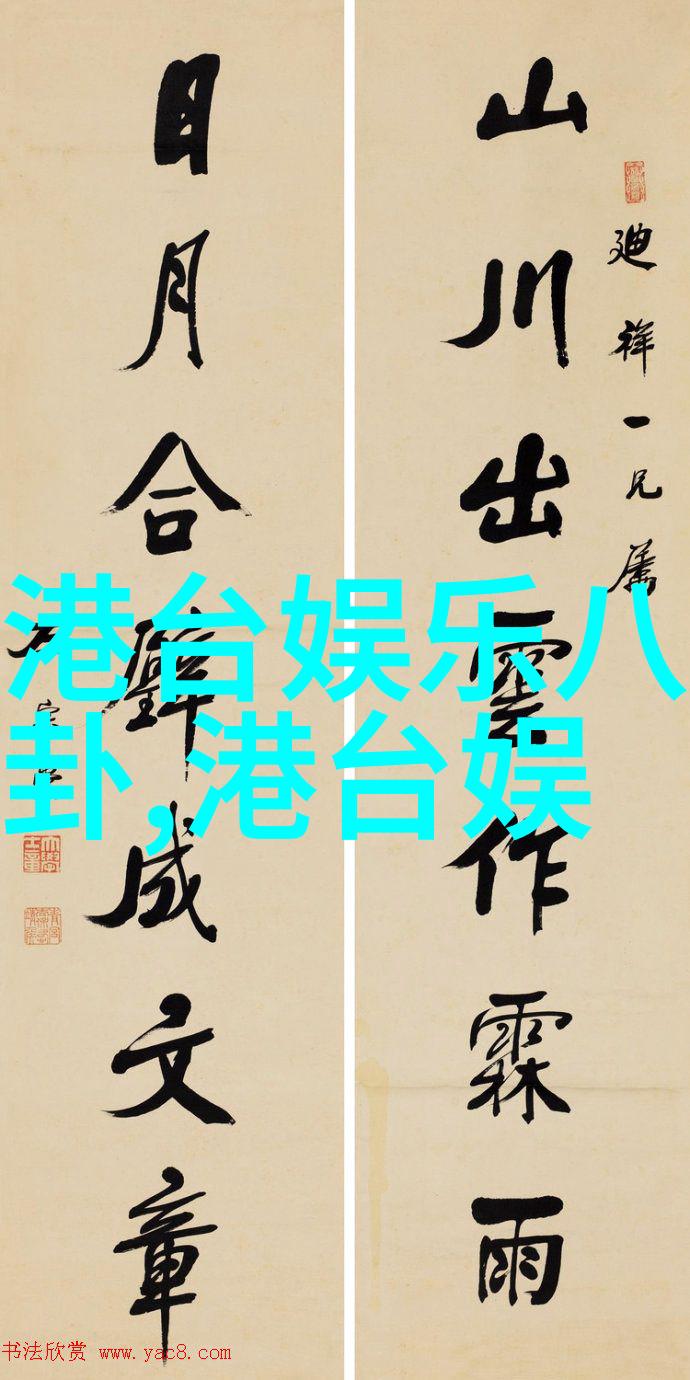 廸祥一兄属
山川出雲作霖雨
日月合璧成文章
港台娱乐八
卦,港台娱
书法欣赏 www.yac8.com